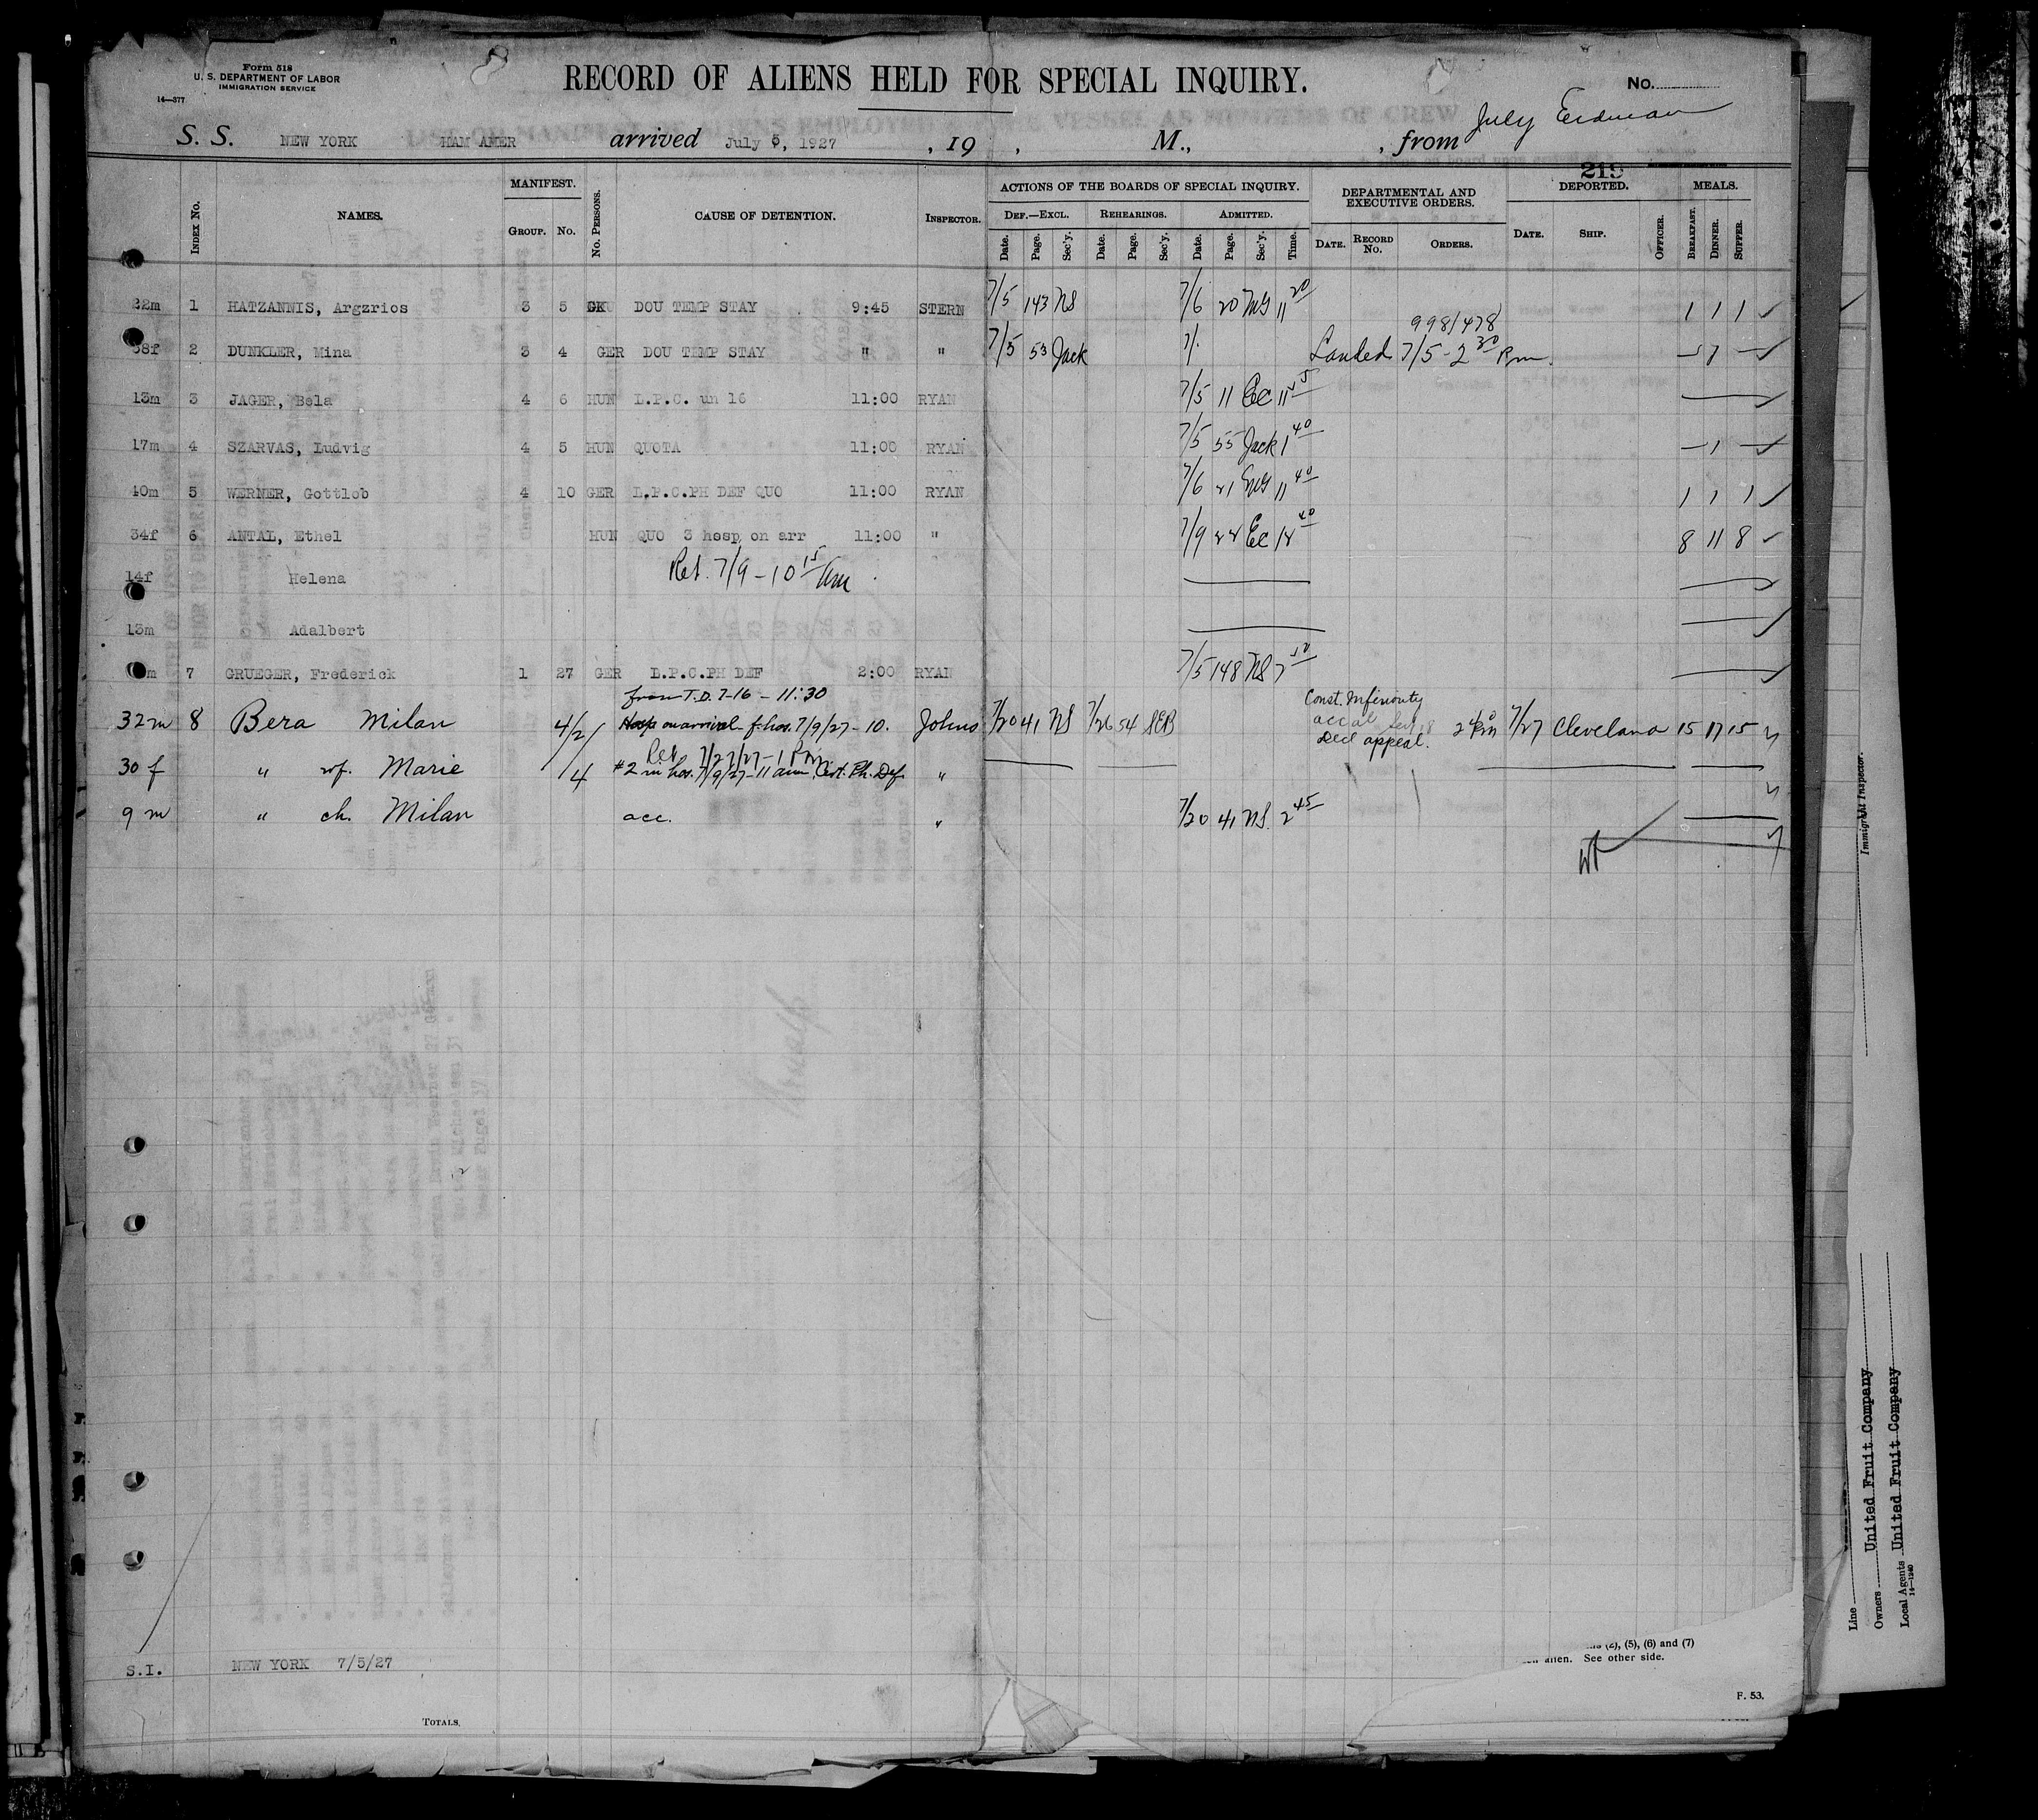 Form 518
U. S. DEPARTMENT OF LABOR
IMMIGRATION SERVICE
14—377
RECORD OF ALIENS HELD FOR SPECIAL INQUIRY.
No.
S. S. NEW YORK HAM AMER arrived July 5, 1927 , 19 , M., , from July Erdman
219
INDEX No. NAMES. MANIFEST. GROUP. No. No. PERSONS. CAUSE OF DETENTION. INSPECTOR. ACTIONS OF THE BOARDS OF SPECIAL INQUIRY. DEF.—EXCL. REHEARINGS. ADMITTED. DEPARTMENTAL AND EXECUTIVE ORDERS. DEPORTED. MEALS.
Date. Page. Sec'y. Date. Page. Sec'y. Date. Page. Sec'y. Time. DATE. RECORD No. ORDERS. DATE. SHIP. OFFICER. BREAKFAST. DINNER. SUPPER.
22m 1 HATZANNIS, Argzrios 3 5 GK DOU TEMP STAY 9:45 STERN 7/5 143 NS 7/6 20 11 20 1 1 1
998/478
38f 2 DUNKLER, Mina 3 4 GER DOU TEMP STAY " " 7/5 53 Jack 7/ Landed 7/5 - 2 30 Pm. — 1 —
13m 3 JAGER, Bela 4 6 HUN L.P.C. un 16 11:00 RYAN 7/5 11 EC 11
17m 4 SZARVAS, Ludvig 4 5 HUN QUOTA 11:00 RYAN 7/5 55 Jack 1 40 — 1 —
40m 5 WERNER, Gottlob 4 10 GER L.P.C.PH DEF QUO 11:00 RYAN 7/6 21 11 40 1 1 1
34f 6 ANTAL, Ethel HUN QUO 3 hosp on arr 11:00 " 7/9 EC 12 40 8 11 8
14f Helena Ret. 7/9 - 10 15 am
13m Adalbert
m 7 GRUEGER, Frederick 1 27 GER L.P.C.PH DEF 2:00 RYAN 7/5 148 NS 7
from T.D. 7-16 - 11:30
32 m 8 Bera Milan 4/2 Hosp on arrival f. hos. 7/9/27 - 10. Johns 7/20 41 NS 7/26 54 SEB Const. Inferiority 7/27 Cleveland 15 17 15
Decl appeal.
Ret. 7/27/27 - 1 Pm.
30 f " wf. Marie 4 #2 in hos. 7/9/27 - 11 am, Cert. Ph. Def. "
9 m " ch. Milan acc. " 7/20 41 NS. 2 45
S.I. NEW YORK 7/5/27
TOTALS.
(2), (5), (6) and (7)
alien. See other side.
F. 53.
Immigrant Inspector.
Line
Owners United Fruit Company
Local Agents United Fruit Company
14—1240